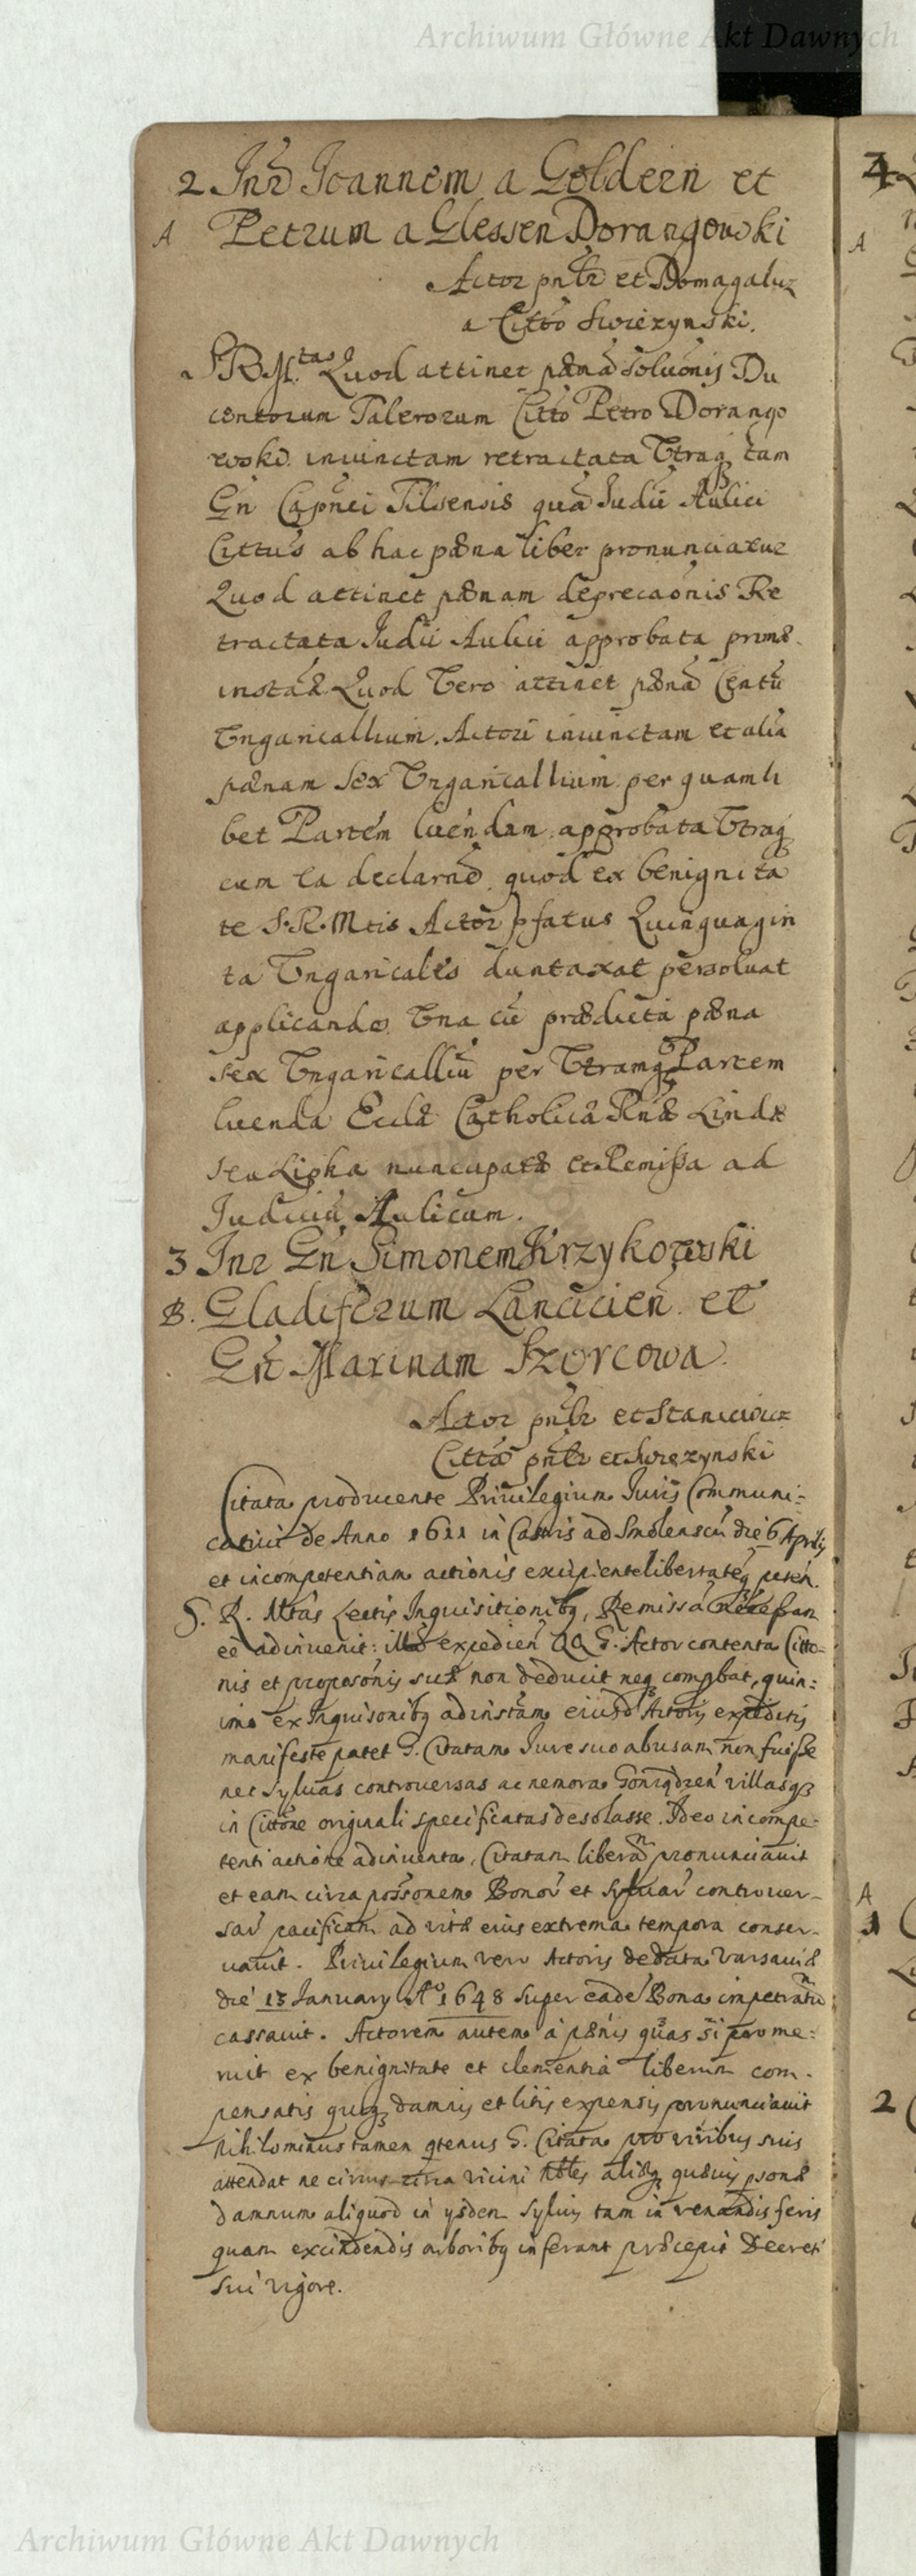 Archiwum Główne Akt Dawnych
2 Inr Ioannem a Goldern et
A Petrum a Glessen Dorangowski
Actor pnlr et Domagaluz
a Citto Swiezynski.
S R M.tas Quod attinet pænã Soluonis Du
centorum Talerorum Citto Petro Dorango
wski inuinctam retractata Vtraq tam
Gn Capnei Tilsensis quã Iudii Aulici
Cittus ab hac pæna liber pronunciatur
Quod attinet pænam deprecaonis Re
tractata Iudii Aulici approbata primæ
instaæ Quod Vero attinet pænã Centũ
Vngaricallium Actori iniunctam et alia
pænam Sex Vngaricallium per quamli
bet Partem luendam approbata Vtraq
cum ea declarne quod ex benignita
te S. R. Mtis Actor pfatus Quinquagin
ta Vngaricales duntaxat persoluat
applicando Vna cũ prædicta pæna
sex Vngaricalliũ per Vtramq Partem
luenda Ecclæ Catholicæ Rnæ Lindæ
seu Lipka nuncupatæ et Remissa ad
Iudiciũ Aulicum.
3 Inr Gn Simonem Krzykowski
B. Gladiferum Lancicien et
Gn Marinam Szorcowa
Actor pnlr et Staniciowicz
Citta pnlr et Swiezynski
Citata producente Priuilegium Iuris Communi-
catiui de Anno 1611 in Castris ad Smolenscũ die 6 Aprilis
et incompetentiam actionis excipiente libertateq peten.
S. R. Mtas Lectis Inquisitionibq, Remissã
ee adinuenit: expedien QQ G. Actor contenta Citto-
nis et proposonis suæ non deducit neq compbat, quin-
imo ex Inquisonibq ad instam eiusd Actoris expeditis
manifeste patet G. Citatam Iure suo abusam non fuisse
nec syluas controuersas ac nemora Goniądzen villasq
in Cittone originali specificatas desolasse. Ideo incompe-
tenti actione adinuenta, Citatam liberã pronunciauit
et eam circa possonem Bonor et syluar controuer-
sar pacificam ad vitæ eius extrema tempora conser-
uauit. Priuilegium vero Actoris de data Varsauiæ
die 13 January Ao 1648 super eade Bona impetratũ
cassauit. Actorem autem à pænis quas si prome-
ruit ex benignitate et clementia liberum com-
pensatis quoq damnis et litis expensis pronunciauit
nihilominus tamen qtenus G. Citata pro viribus suis
attendat ne ciuius circa vicini Nbles aliæq quæuis psonæ
damnum aliquod in ysdem syluis tam in venandis feris
quam excindendis arboribq inferant præcepit Decreti
sui vigore.
4
A
A
1
2
Archiwum Główne Akt Dawnych